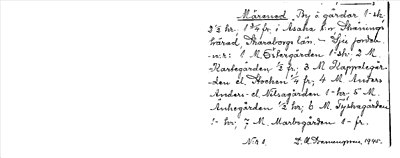 Mårened. By å gårdar 1-sk.
2½ hr. 1¾ fr. i Asaka s:n, Skånings
härad, Skaraborgs län. — Sju jordeb.
n:r: 1 M. Sikergården 1-sk; 2 M.
Karlegården ½ fr; 3 M Kappelegår-
den el. Stocken ¼ fr; 4 M. Anders
Anders- el. Nilsagården 1-hr; 5 M.
Ånkegården ½ hr; 6 M. Tyskagården
1- hr; 7 M. Marbogården 1 - fr.
N:r 1. 1945.